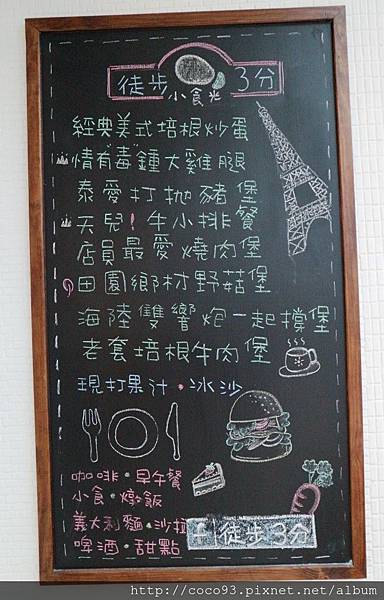 徒步 小食光 3分
經典美式培根炒蛋
情有"毒"鍾大雞腿
泰愛打拋豬堡
天兒!牛小排餐
店員最愛燒肉堡
田園鄉村野菇堡
海陸雙響炮一起擋堡
老套培根牛肉堡
現打果汁·冰沙
咖啡·早午餐
小食·燉飯
義大利麵·沙拉
啤酒·甜點
徒步3分
http://coco93.pixnet.net/album